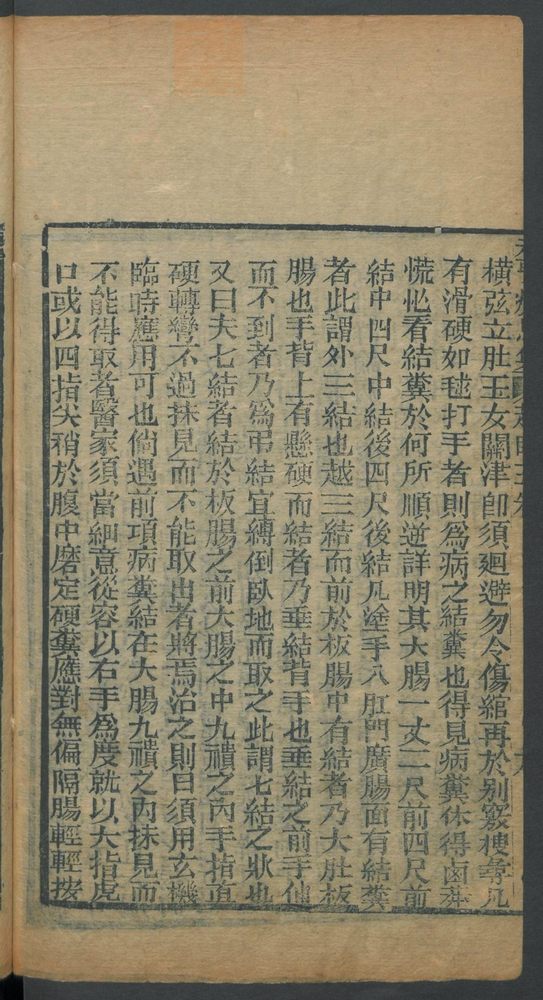 橫弦立肚玉女關津卽須廻避勿令傷綰再於別竅摟尋凡
有滑硬如毬打手者則爲病之結糞也得見病糞休得鹵莽
慌忙看結糞於何所順逆詳明其大腸一丈二尺前四尺前
結中四尺中結後四尺後結凡塗手入肛門廣腸面有結糞
者此謂外三結也越三結而前於板腸中有結者乃大肚板
腸也手背上有懸硬而結者乃垂結背手也垂結之前手伸
而不到者乃爲弔結宜縛倒臥地而取之此謂七結之狀也
又曰夫七結者結於板腸之前大腸之中九䙡之內手指直
硬轉彎不過抹見而不能取出者將焉治之則曰須用玄機
臨時應用可也倘遇前項病糞結在大腸九䙡之內抹見而
不能得取者醫家須當細意從容以右手爲度就以大指虎
口或以四指尖稍於腹中磨定硬糞應對無偏隔腸輕輕按